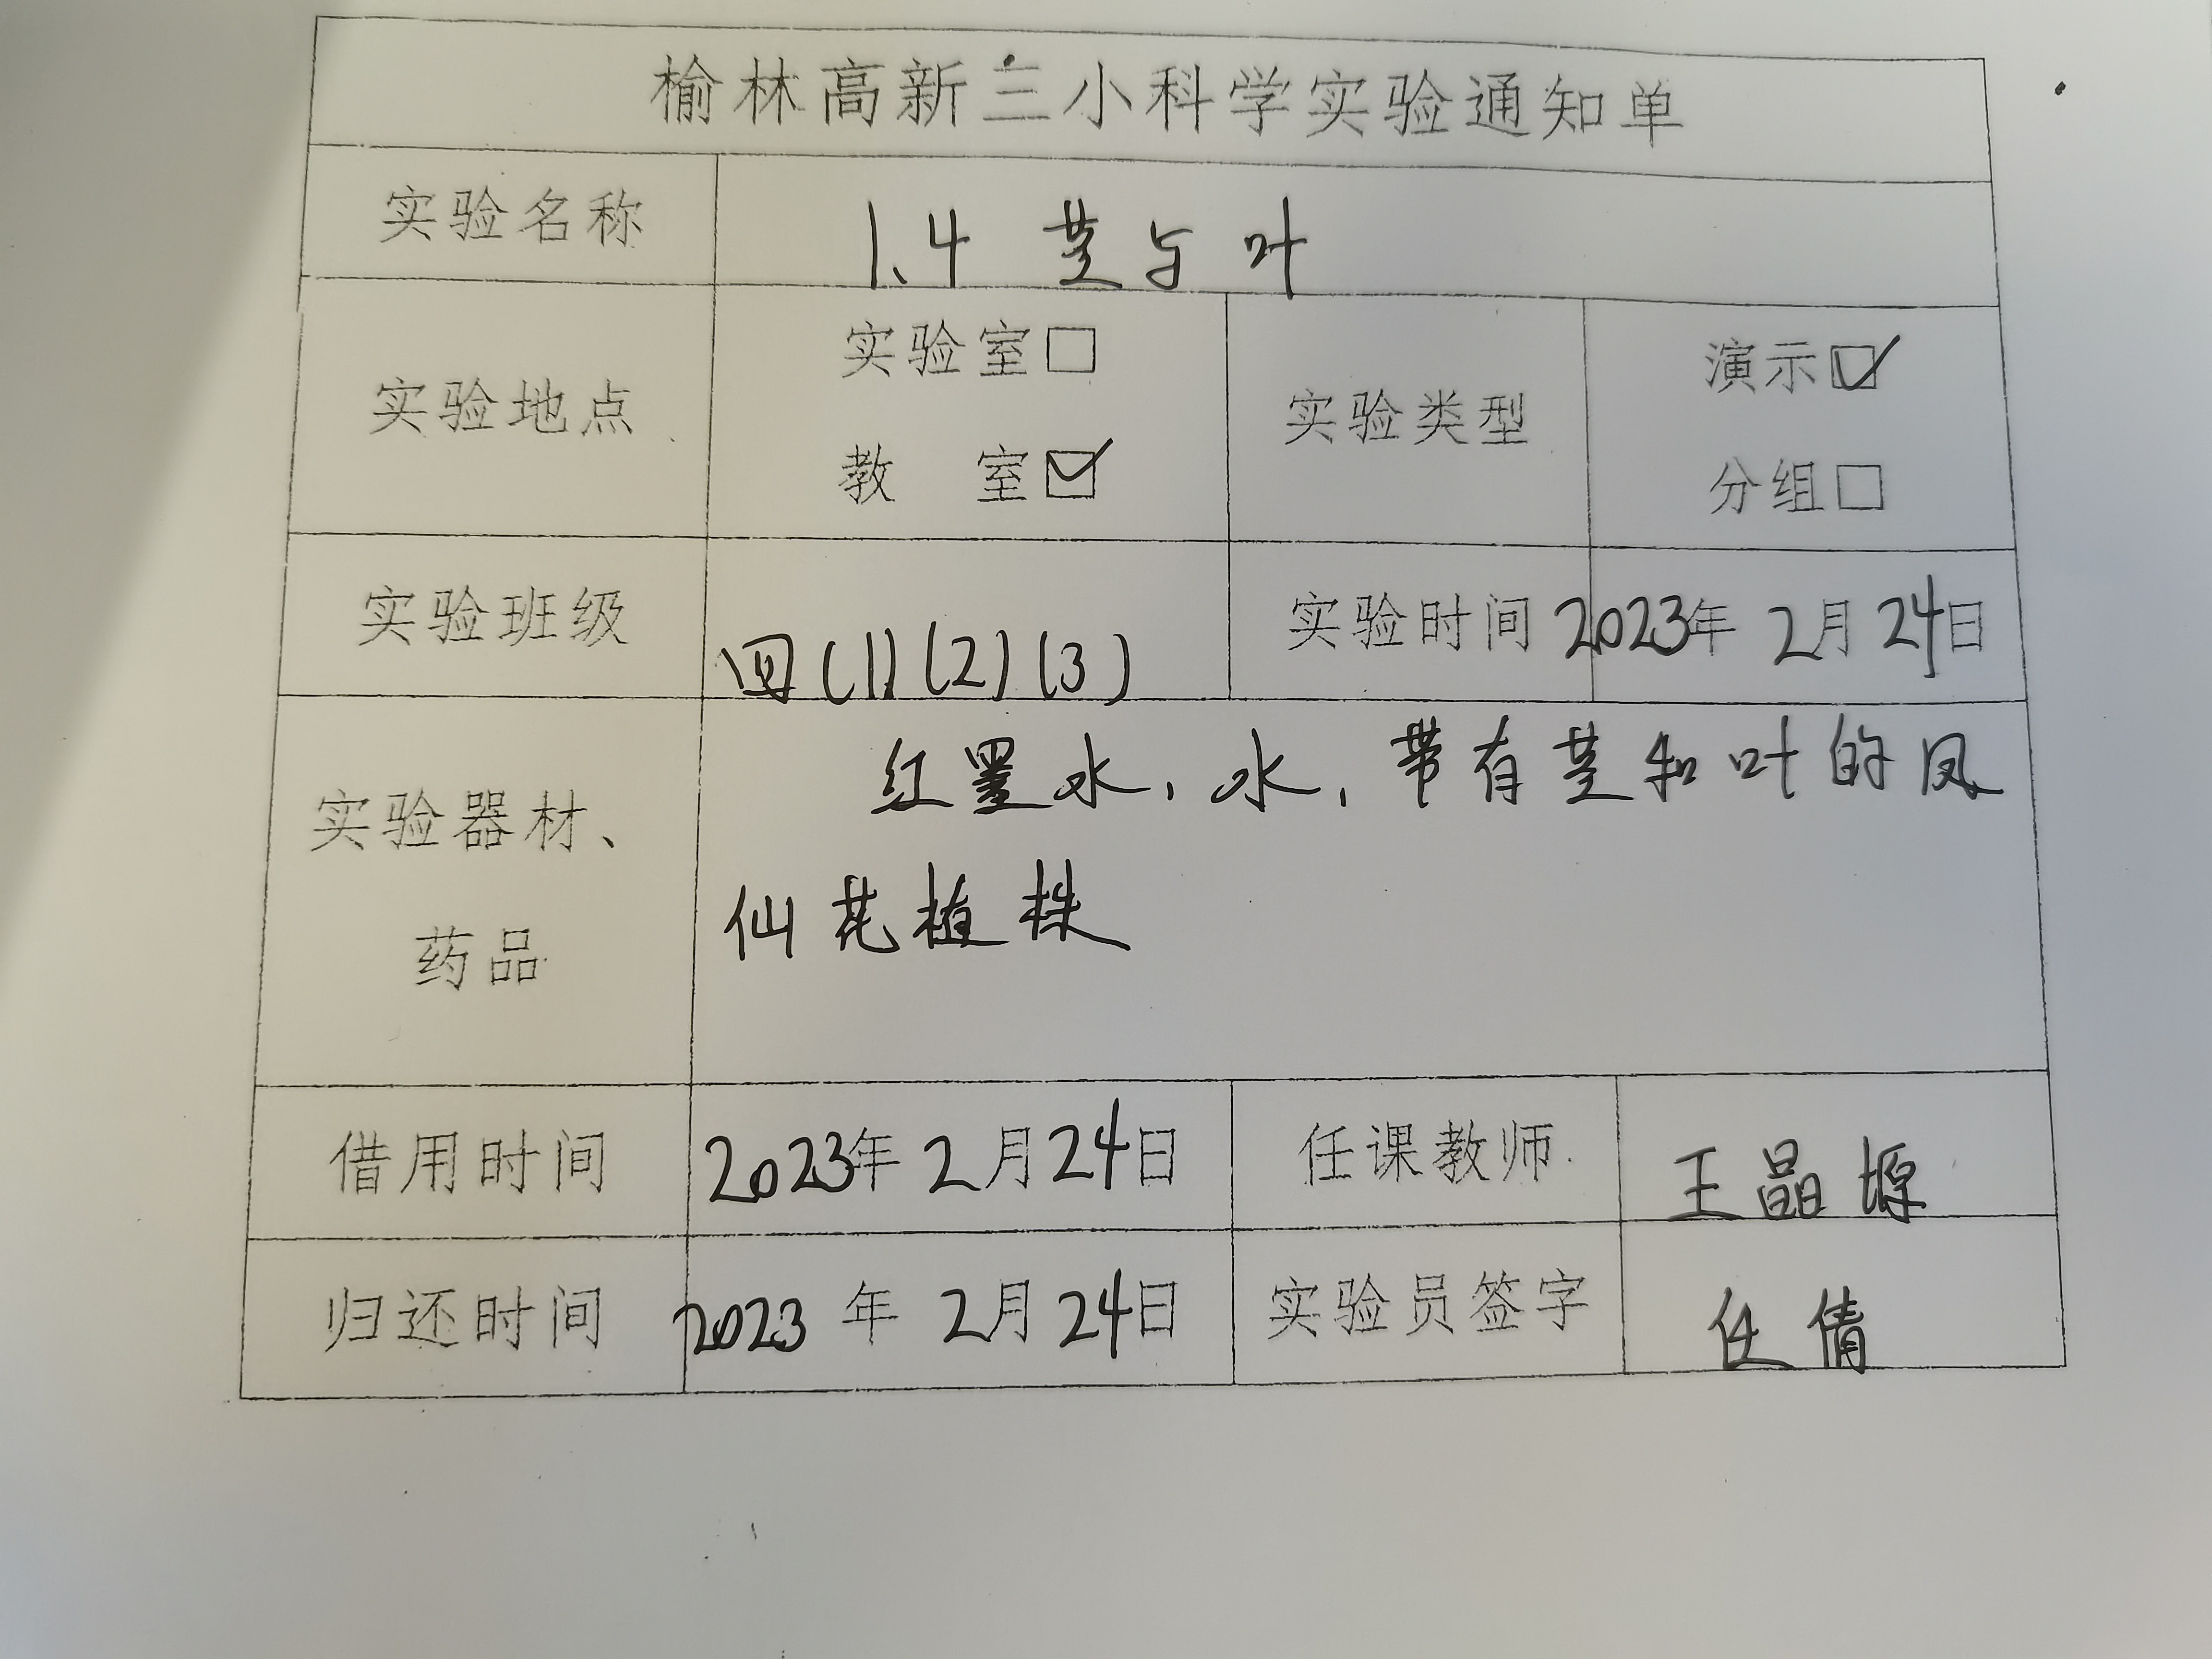 榆林高新三小科学实验通知单
实验名称 1、4 茎与叶
实验地点 实验室□ 教 室☑ 实验类型 演示☑ 分组□
实验班级 四(1)(2)(3) 实验时间 2023年 2月 24日
实验器材、药品 红墨水，水，带有茎和叶的凤
仙花植株
借用时间 2023年 2月24日 任课教师 王晶塬
归还时间 2023年 2月24日 实验员签字 任倩